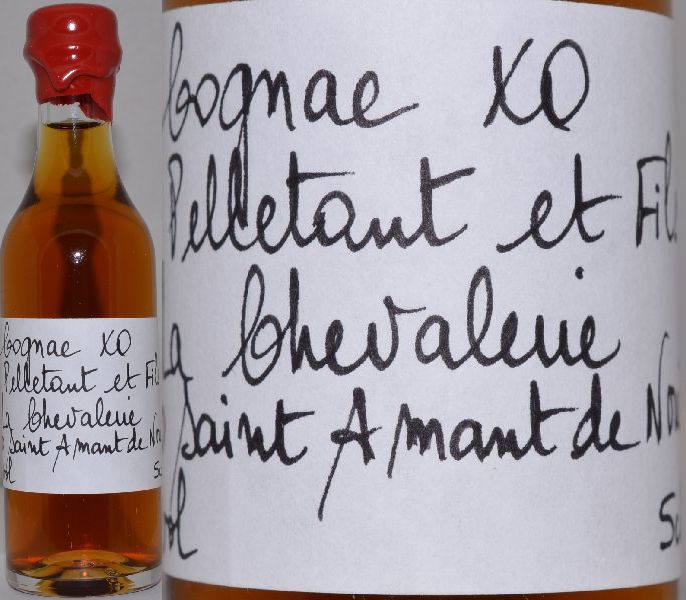 Cognac XO
Pelletant et Fil
La Chevalerie
Saint Amant de Noi
Cognac XO
Pelletant et Fils
La Chevalerie
Saint Amant de Noi